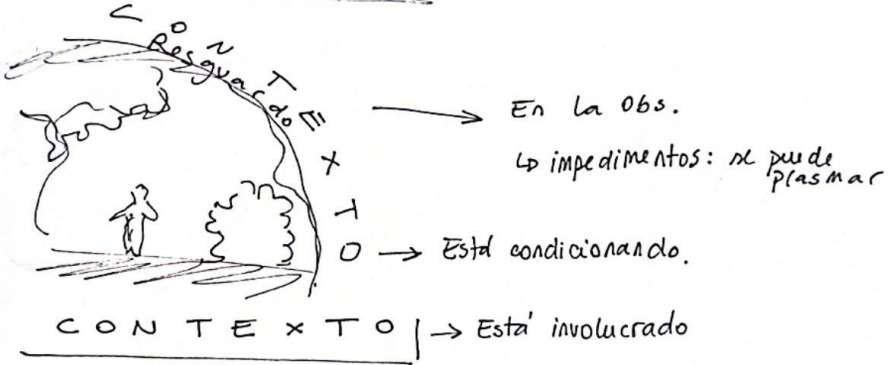 CONTEXTO
Resguardo
En la Obs.
↳ impedimentos: se puede
plasmar
→ Está condicionando.
CONTEXTO → Está involucrado